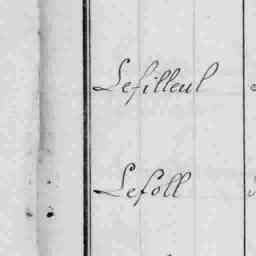 Lefilleul
Lefoll